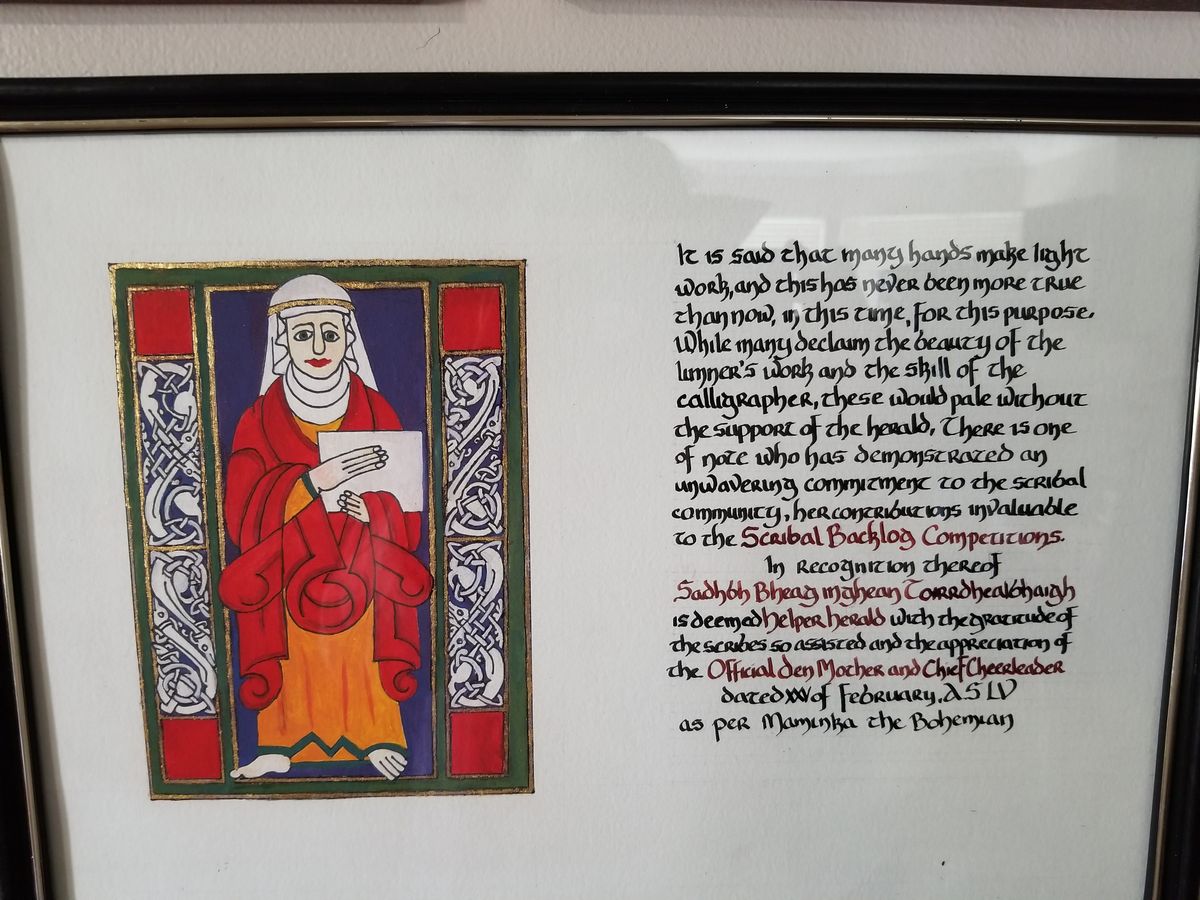 It is said that many hands make light
work, and this has never been more true
than now, in this time, for this purpose.
While many declaim the beauty of the
limner's work and the skill of the
calligrapher, these would pale without
the support of the herald. There is one
of note who has demonstrated an
unwavering commitment to the scribal
community, her contributions invaluable
to the Scribal Backlog Competitions.
In Recognition thereof
Sadhbh Bheag inghean Toirrdhealbhaigh
is deemed helper herald with the gratitude of
the scribes so assisted and the appreciation of
the Official Den Mother and Chief Cheerleader
dated XXV of February, AS LV
as per Maminka the Bohemian